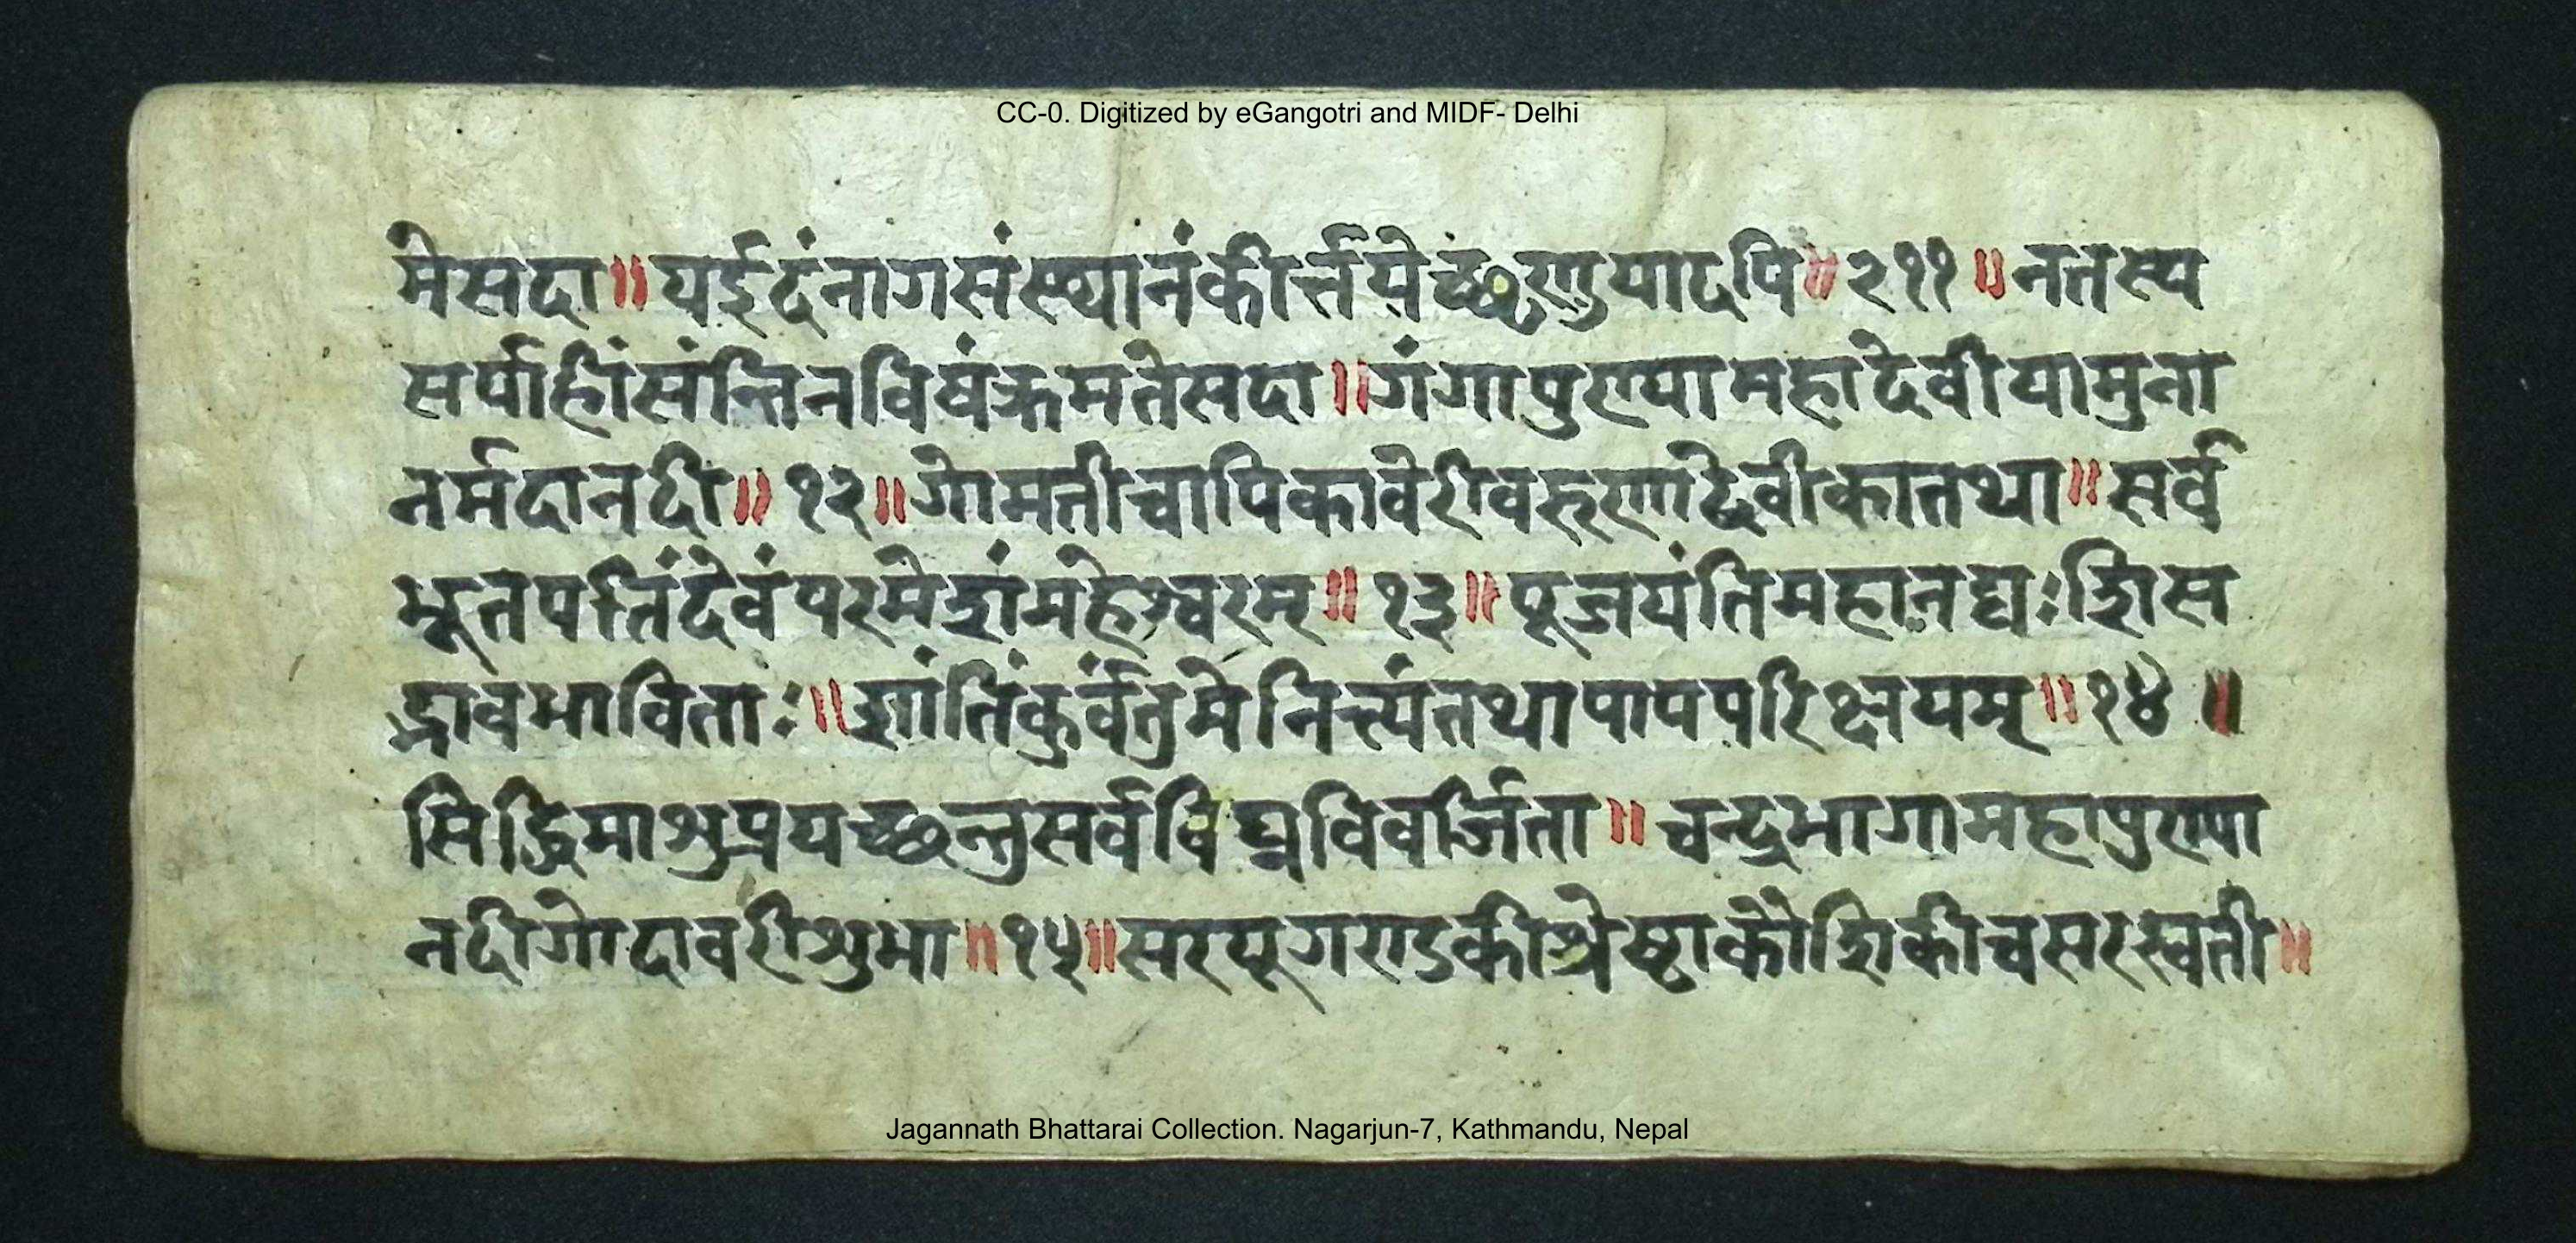 CC-0. Digitized by eGangotri and MIDF- Delhi
मेसदा॥यईदंनागसंस्थानंकीर्त्तयेच्छृणुयादपि॥२११॥नतस्य
सर्पाहिंसंन्तिनविषंक्रमतेसदा॥गंगापुण्यामहादेवीयामुना
नर्मदानदी॥१२॥गोमतीचापिकावेरीवरुणादेवीकातथा॥सर्व
भूतपतिंदेवंपरमेशंमहेश्वरम्॥१३॥पूजयंतिमहानद्यःशिस
द्भावभाविताः॥शांतिंकुर्वंतुमेनित्त्यंतथापापपरिक्षयम्॥१४॥
सिद्धिमाशुप्रयच्छन्तुसर्वविघ्नविवर्जिता॥चन्द्रभागामहापुण्या
नदीगोदावरीशुभा॥१५॥सरयूगण्डकीश्रेष्टाकौशिकीचसरस्वती॥
Jagannath Bhattarai Collection. Nagarjun-7, Kathmandu, Nepal